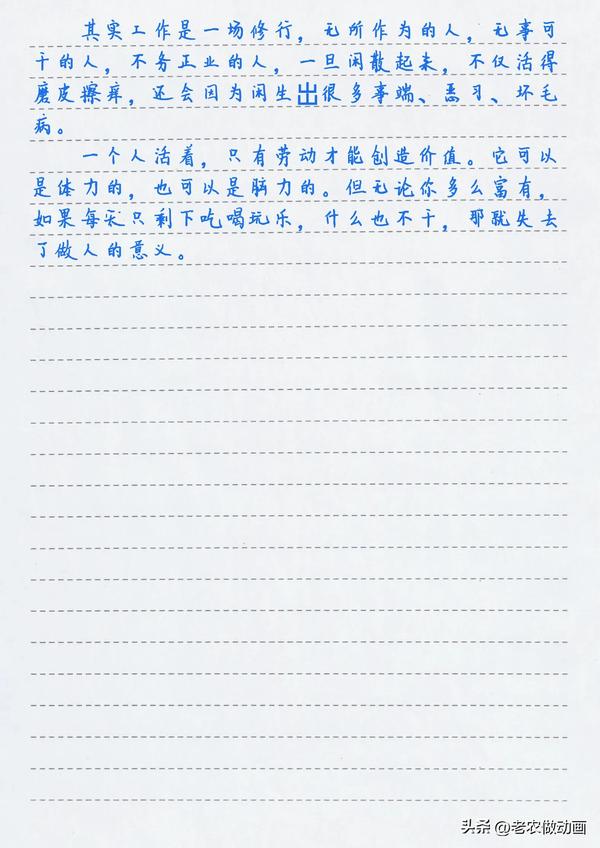 其实工作是一场修行，无所作为的人，无事可
干的人，不务正业的人，一旦闲散起来，不仅活得
磨皮擦痒，还会因为闲生出很多事端、恶习、坏毛
病。
一个人活着，只有劳动才能创造价值。它可以
是体力的，也可以是脑力的。但无论你多么富有，
如果每天只剩下吃喝玩乐，什么也不干，那就失去
了做人的意义。
头条 @老农做动画